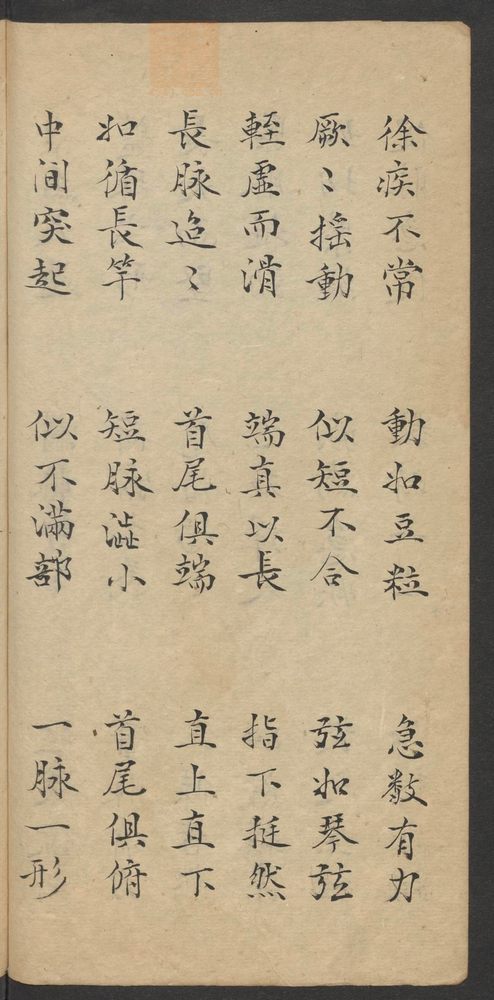 徐疾不常 動如豆粒 急数有力
厥〻揺動 似短不合 弦如琴弦
輕虛而滑 端真以長 指下挺然
長脉迢〻 首尾俱端 直上直下
如循長竿 短脉澁小 首尾俱俯
中间突起 似不滿部 一脉一形